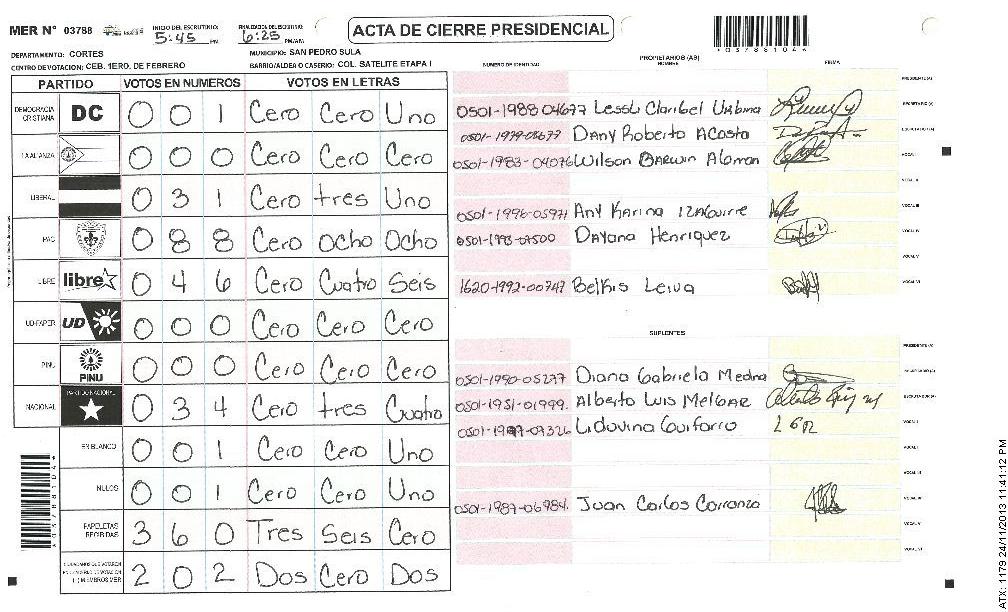 MER N° 03788
INICIO DEL ESCRUTINIO: 5:45 PM
FINALIZACION DEL ESCRUTINIO: 6:25 PM/AM
ACTA DE CIERRE PRESIDENCIAL
DEPARTAMENTO: CORTES
MUNICIPIO: SAN PEDRO SULA
CENTRO DE VOTACION: CEB. 1ERO. DE FEBRERO
BARRIO/ALDEA O CASERIO: COL. SATELITE ETAPA I
PARTIDO VOTOS EN NUMEROS VOTOS EN LETRAS
DEMOCRACIA CRISTIANA DC 0 0 1 Cero Cero Uno
LA ALIANZA 0 0 0 Cero Cero Cero
LIBERAL 0 3 1 Cero tres Uno
PAC 0 8 8 Cero Ocho Ocho
LIBRE libre 0 4 6 Cero Cuatro Seis
UD-FAPER UD 0 0 0 Cero Cero Cero
PINU PINU 0 0 0 Cero Cero Cero
NACIONAL PARTIDO NACIONAL 0 3 4 Cero tres Cuatro
EN BLANCO 0 0 1 Cero Cero Uno
NULOS 0 0 1 Cero Cero Uno
PAPELETAS RECIBIDAS 3 6 0 Tres Seis Cero
2 0 2 Dos Cero Dos
NUMERO DE IDENTIDAD PROPIETARIOS (AS) NOMBRE FIRMA
PRESIDENTE (A)
0501-1988 04677 Claribel Urbina SECRETARIO (A)
Dany Roberto Acosta ESCRUTADOR (A)
0501-1983-04076 Wilson Darwin Aleman VOCAL I
VOCAL II
0501-1996-05971 Any Karina Izaguirre VOCAL III
Dayana Henriquez VOCAL IV
VOCAL V
1620-1992-00747 Belkis Leiva VOCAL VI
SUPLENTES
PRESIDENTE (A)
0501-1990-05277 Diana Gabriela Medina SECRETARIO (A)
0501-1951-01999. Alberto Luis Melgar ESCRUTADOR (A)
Lidovina LGR VOCAL I
VOCAL III
0501-1987-06984. Juan Carlos Carranza VOCAL IV
VOCAL V
VOCAL VI
ATX: 1179 24/11/2013 11:41:12 PM